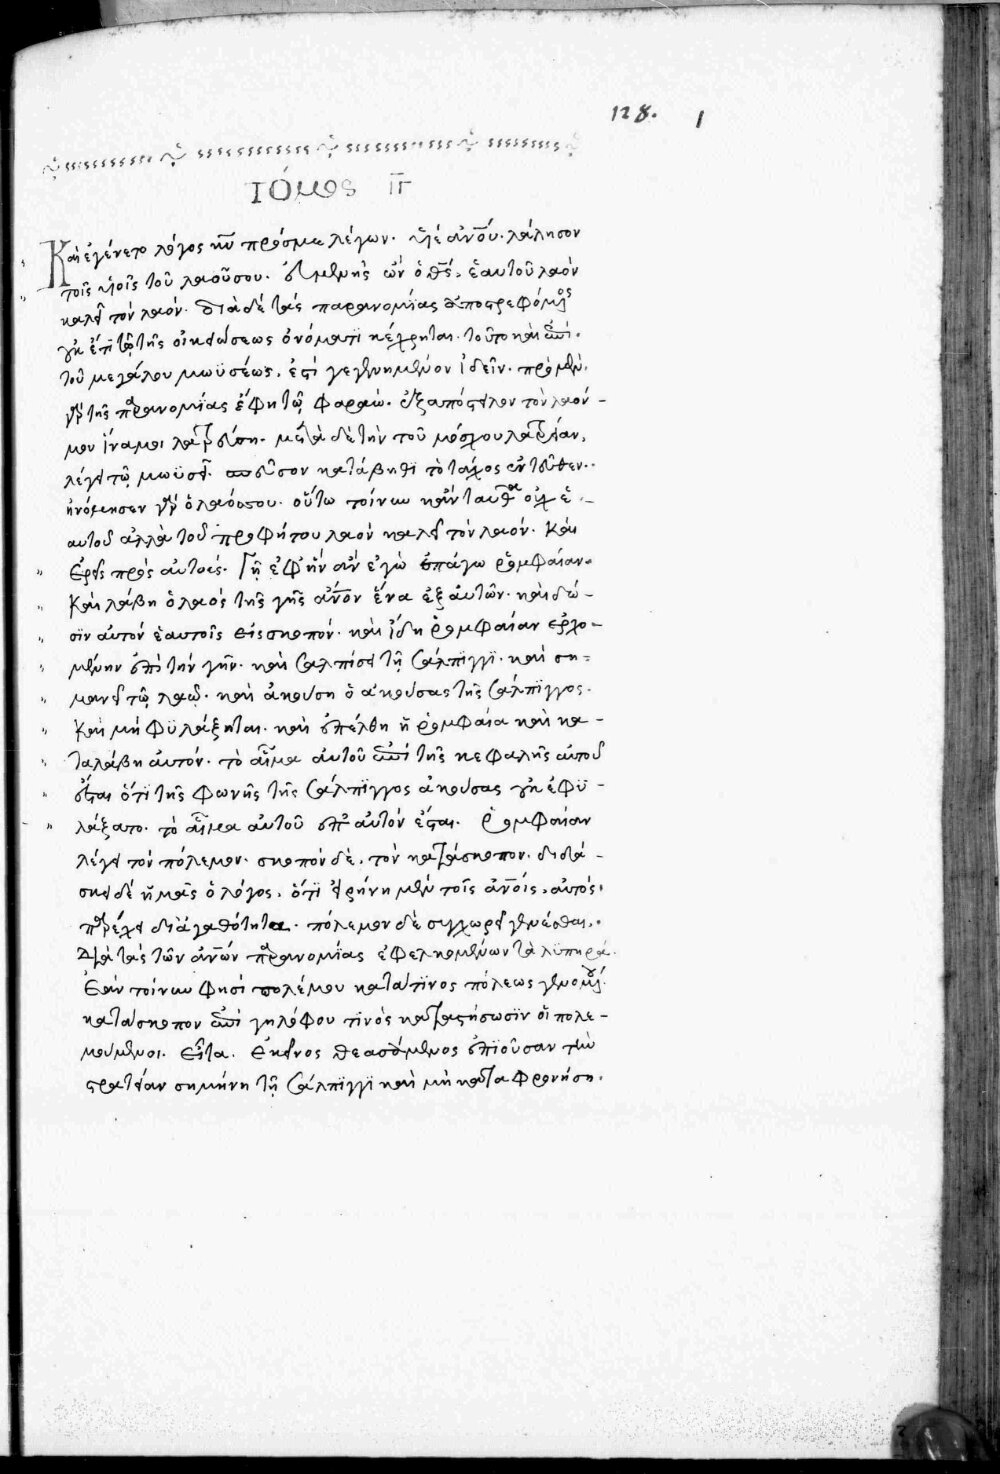 128. 1
Τόμος Γ
Καὶ ἐγένετο λόγος κῦ πρός με λέγων. υἱὲ ἀνοῦ. λάλησον
τοῖς υἱοῖς τοῦ λαοῦ σου. εὐμενὴς ὢν ὁ θς, ἑαυτοῦ λαὸν
καλεῖ τὸν λαόν. διὰ δὲ τὰς παρανομίας ἀποστρεφόμενος
οὐκ ἔτι τῷ τῆς οἰκειώσεως ὀνόματι κέχρηται. τοῦτο καὶ ἐπὶ
τοῦ μεγάλου μωϋσέως, ἐστὶ γεγενημένον ἰδεῖν. πρὸ μὲν
γὰρ τῆς παρανομίας ἔφη τῷ φαραώ. ἐξαπόστειλον τὸν λαόν
μου ἵνα μοι λατρεύσῃ. μετὰ δὲ τὴν τοῦ μόσχου λατρείαν,
λέγει τῷ μωϋσεῖ. σπεῦσον κατάβηθι τὸ τάχος ἐντεῦθεν.
ἠνόμησεν γὰρ ὁ λαός σου. οὕτω τοίνυν κἀνταῦθα οὐχ ἑ-
αυτοῦ ἀλλὰ τοῦ προφήτου λαὸν καλεῖ τὸν λαόν. Καὶ
ἐρεῖς πρὸς αὐτούς. Γῆ ἐφ' ἣν ἂν ἐγὼ ἐπάγω ῥομφαίαν.
Καὶ λάβῃ ὁ λαὸς τῆς γῆς ἄνον ἕνα ἐξ αὐτῶν. καὶ δώ-
σιν αὐτὸν ἑαυτοῖς εἰς σκοπόν. καὶ ἴδη ῥομφαίαν ἐρχο-
μένην ἐπὶ τὴν γῆν. καὶ σαλπίσει τῇ σάλπιγγι. καὶ ση-
μανεῖ τῷ λαῷ. καὶ ἀκούσῃ ὁ ἀκούσας τῆς σάλπιγγος.
Καὶ μὴ φϋλάξηται. καὶ ἐπέλθη ἡ ῥομφαία καὶ κα-
ταλάβη αὐτόν. τὸ αἷμα αὐτοῦ ἐπὶ τῆς κεφαλῆς αὐτοῦ
ἔσται ὅτι τῆς φωνῆς τῆς σάλπιγγος ἀκούσας οὐκ ἐφϋ-
λάξατο. τὸ αἷμα αὐτοῦ ἐπ' αὐτὸν ἔσται. Ῥομφαίαν
λέγει τὸν πόλεμον. σκοπὸν δὲ, τὸν κατάσκοπον. διδά-
σκει δὲ ἡμᾶς ὁ λόγος, ὅτι εἰρήνη μὲν τοῖς ἀνοις, αὐτὸς
παρέχει δι' ἀγαθότητα. πόλεμον δὲ συγχωρεῖ γενέσθαι,
διὰ τὰς τῶν ἀνων παρανομίας ἐφελκομένων τὰ λϋπηρά.
Ἐὰν τοίνυν φησὶ πολέμου κατά τινος πόλεως γενομένου
κατάσκοπον ἐπὶ γηλόφου τινὸς καταστήσωσιν οἱ πολε-
μούμενοι. Εἶτα. Ἐκεῖνος θεασάμενος ἐπιοῦσαν τὴν
στρατείαν σημήνῃ τῇ σάλπιγγι καὶ μὴ καταφρονήσῃ.